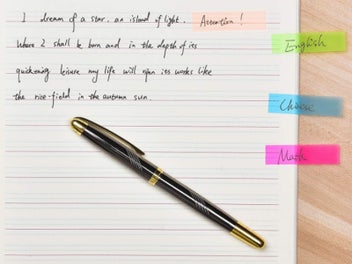 I dream of a star, an island of light. Attention!
Where I shall be born and in the depth of its
English
quickening leisure my life will ripen its works like
Chinese
the rice-field in the autumn sun.
Math